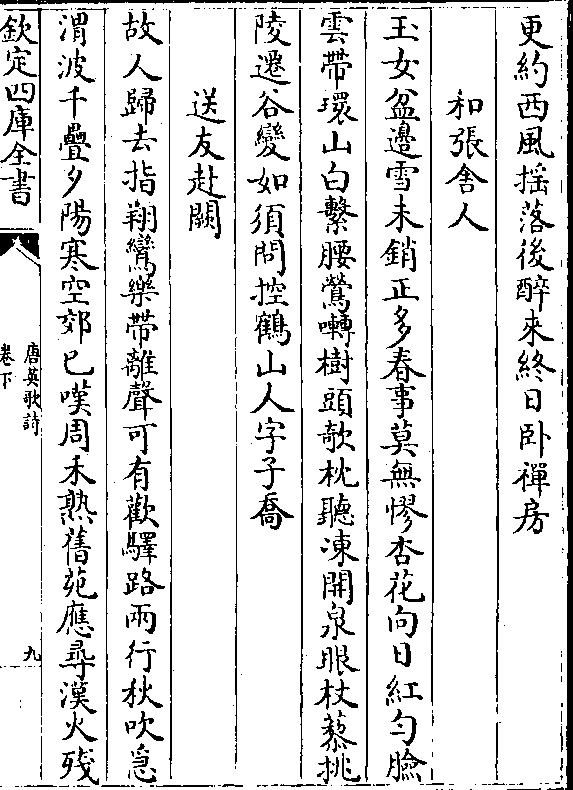 更約西風揺落後醉來終日卧禪房
和張舍人
玉女盆邊雪未銷正多春事莫無憀杏花向日紅勻臉
雲帶環山白繫腰鶯囀樹頭欹枕聽凍開泉眼杖藜挑
陵遷谷變如須問控鶴山人字子喬
送友赴闕
故人歸去指翔鸞樂帶離聲可有歡驛路兩行秋吹急
渭波千疊夕陽寒空郊已嘆周禾熟舊苑應尋漢火殘
欽定四庫全書
唐英歌詩
卷下
九